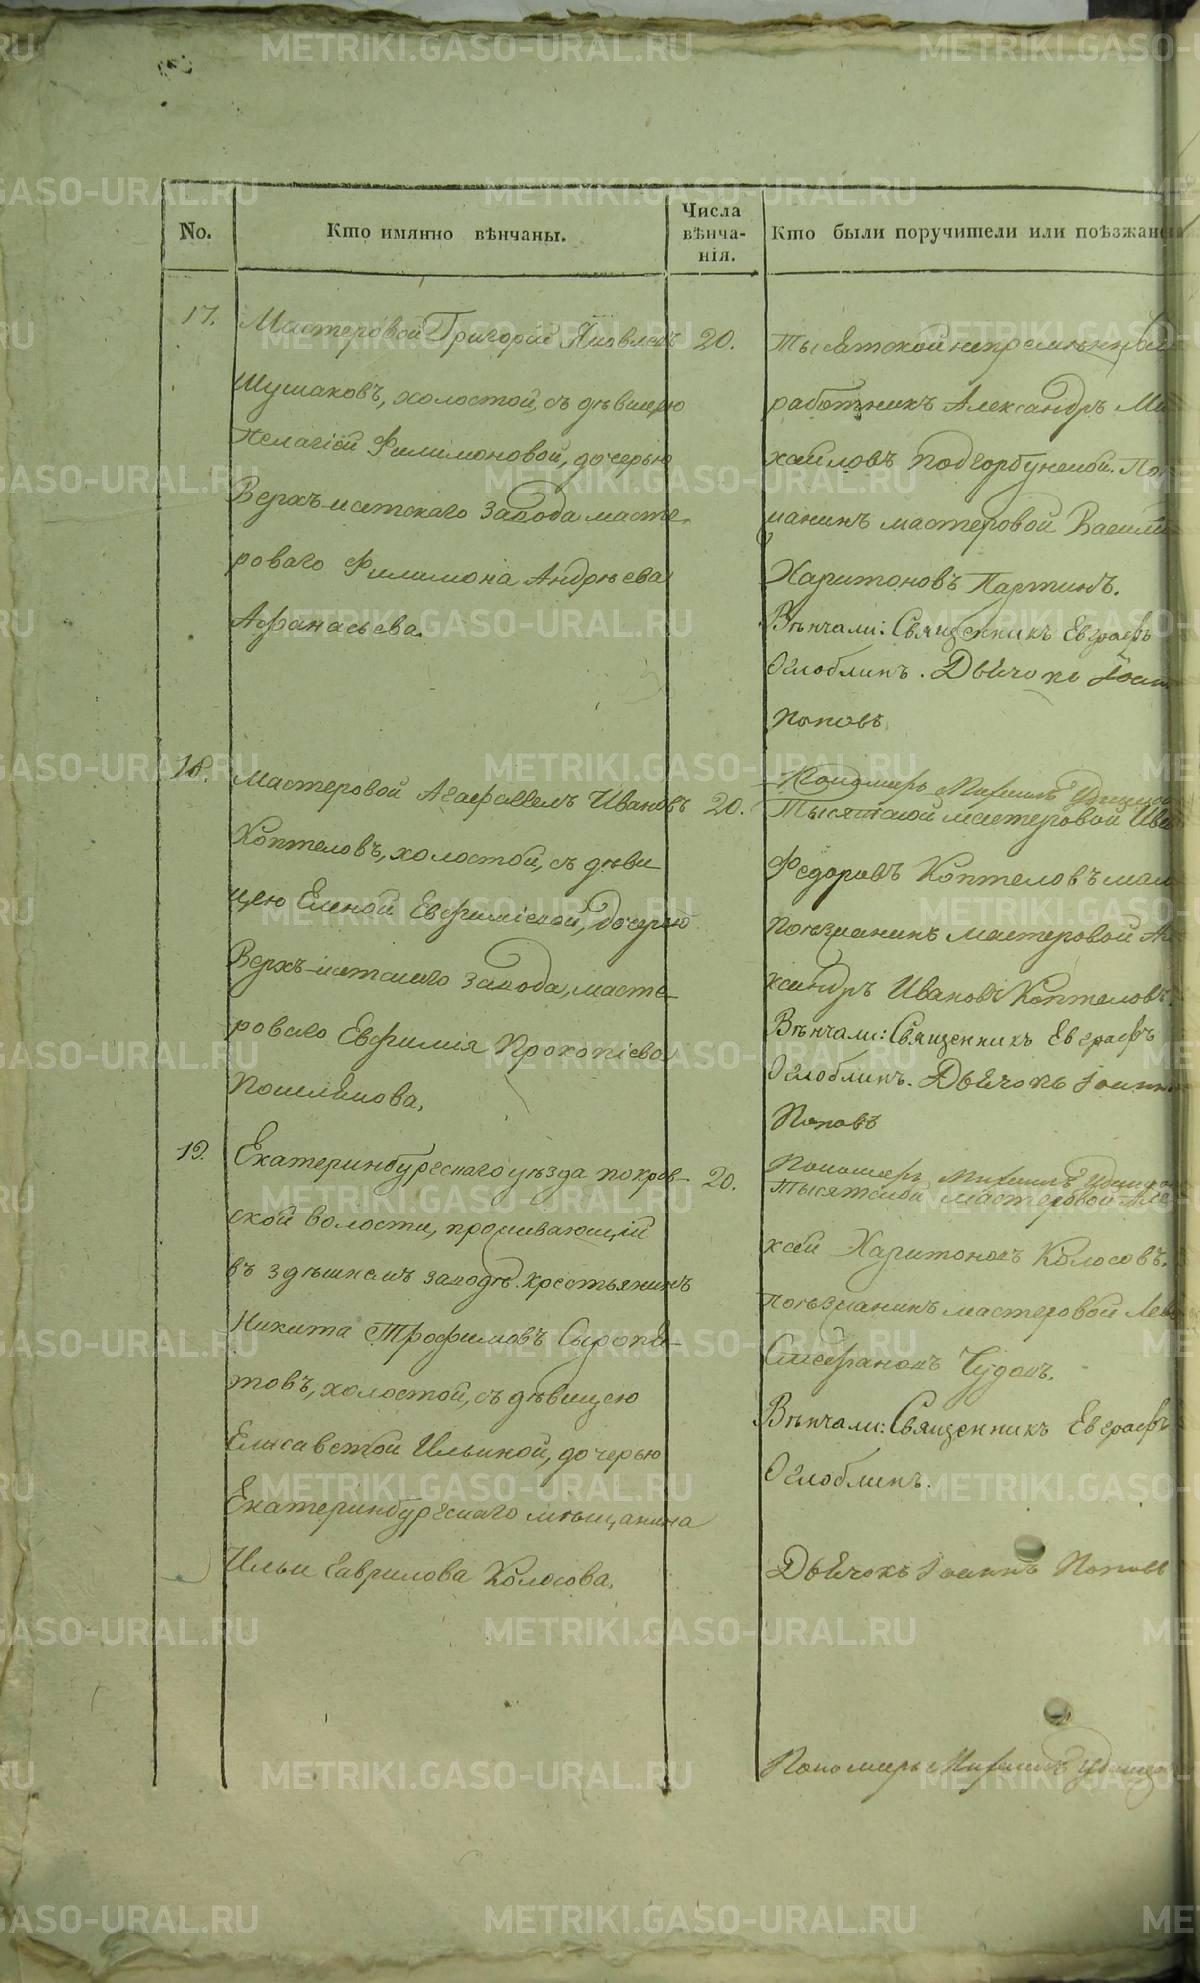 No.
Кто имянно вѣнчаны.
Числа
вѣнча-
нія.
Кто были поручители или поѣзжан
17.
Мастеровой Григорій Яковлевъ
Шушаковъ, холостой, съ дѣвицею
Пелагіей Филимоновой, дочерью
Верхъ-исетскаго завода масте-
роваго Филимона Андрѣева
Афанасьева.
20.
Тысятской непремѣнный
работникъ Александръ Ми
хайловъ Подгорбунской. По
жанинъ мастеровой Васили
Харитоновъ Партинъ.
Вѣнчали: Священникъ Евграфъ
Оглоблинъ. Дьячокъ Іоан
Поповъ
Пономарь Михаилъ
18.
Мастеровой Агафаггелъ Ивановъ
Коптеловъ, холостой, съ дѣви
цею Еленой Евфиміевой, дочерью
Верхъ-исетскаго завода, масте-
роваго Евфимія Прокопіева
20.
Тысятской мастеровой Ива
Федоровъ Коптеловъ мал
поѣзжанинъ мастеровой Ал
ксандръ Ивановъ Коптеловъ.
Вѣнчали: Священникъ Евграфъ
Оглоблинъ. Дьячокъ Іоанн
Поповъ
Пономарь Михаилъ
19.
Екатеринбургскаго уѣзда покров-
ской волости, проживающій
въ здѣшнемъ заводѣ крестьянинъ
Никита Трофимовъ Сыропя-
товъ, холостой, съ дѣвицею
Елисаветой Ильиной, дочерью
Екатеринбургскаго мѣщанина
Ильи Гаврилова Колосова.
20.
Тысятской мастеровой Але
ксѣй Харитоновъ Колосовъ.
поѣзжанинъ мастеровой Лев
Стефановъ Чудовъ.
Вѣнчали: Священникъ Евграфъ
Оглоблинъ.
Дьячокъ Іоаннъ Поповъ
Пономарь Михаилъ
METRIKI.GASO-URAL.RU